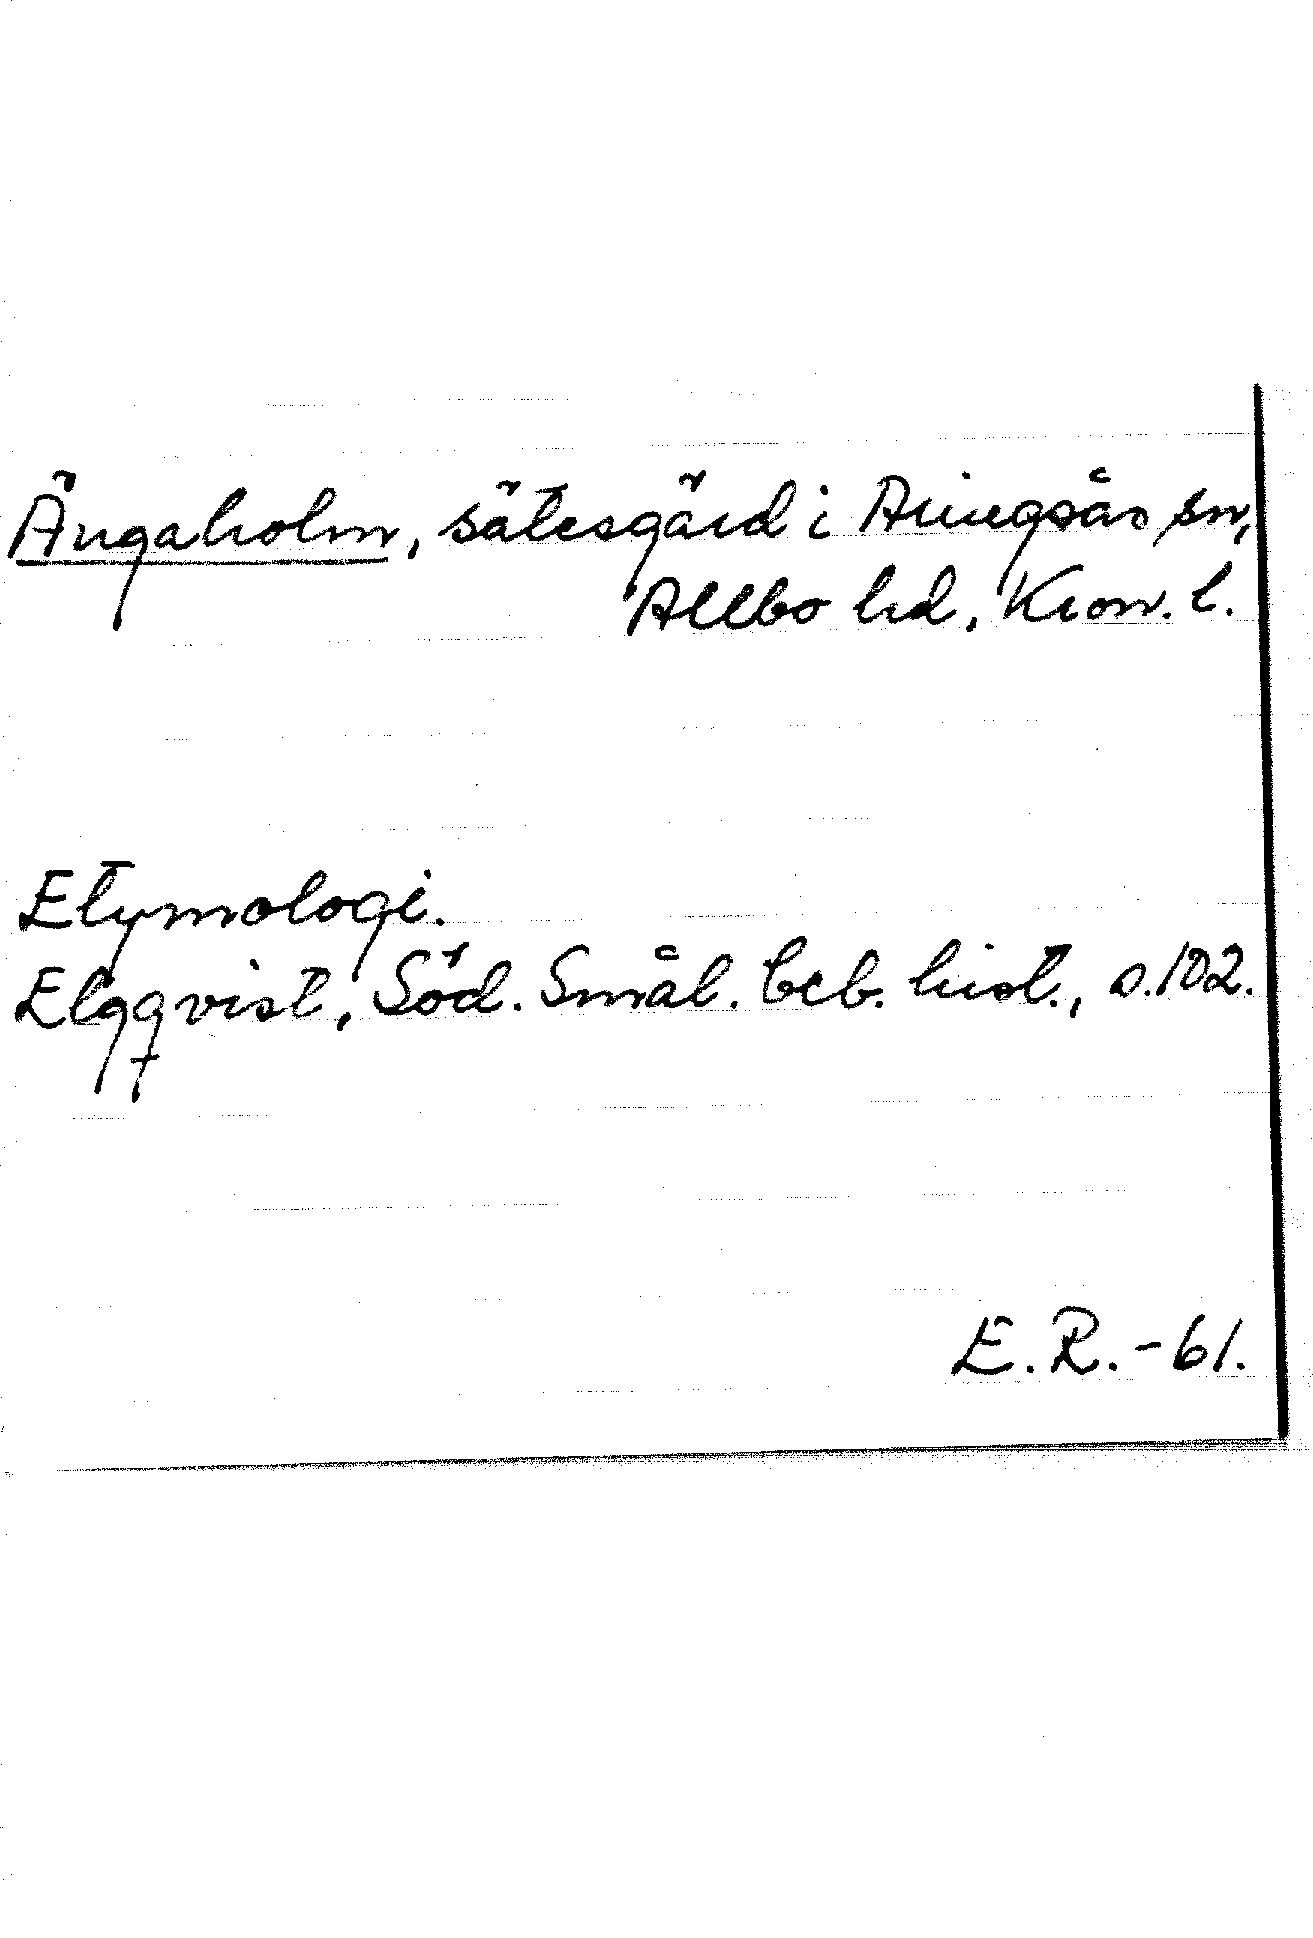 Ängaholm, sätesgård i Aringsås sn,
Allbo hd, Kron. l.
Etymologi.
Elgqvist, Söd. Smål. beb. hist., s. 102.
E. R. - 61.